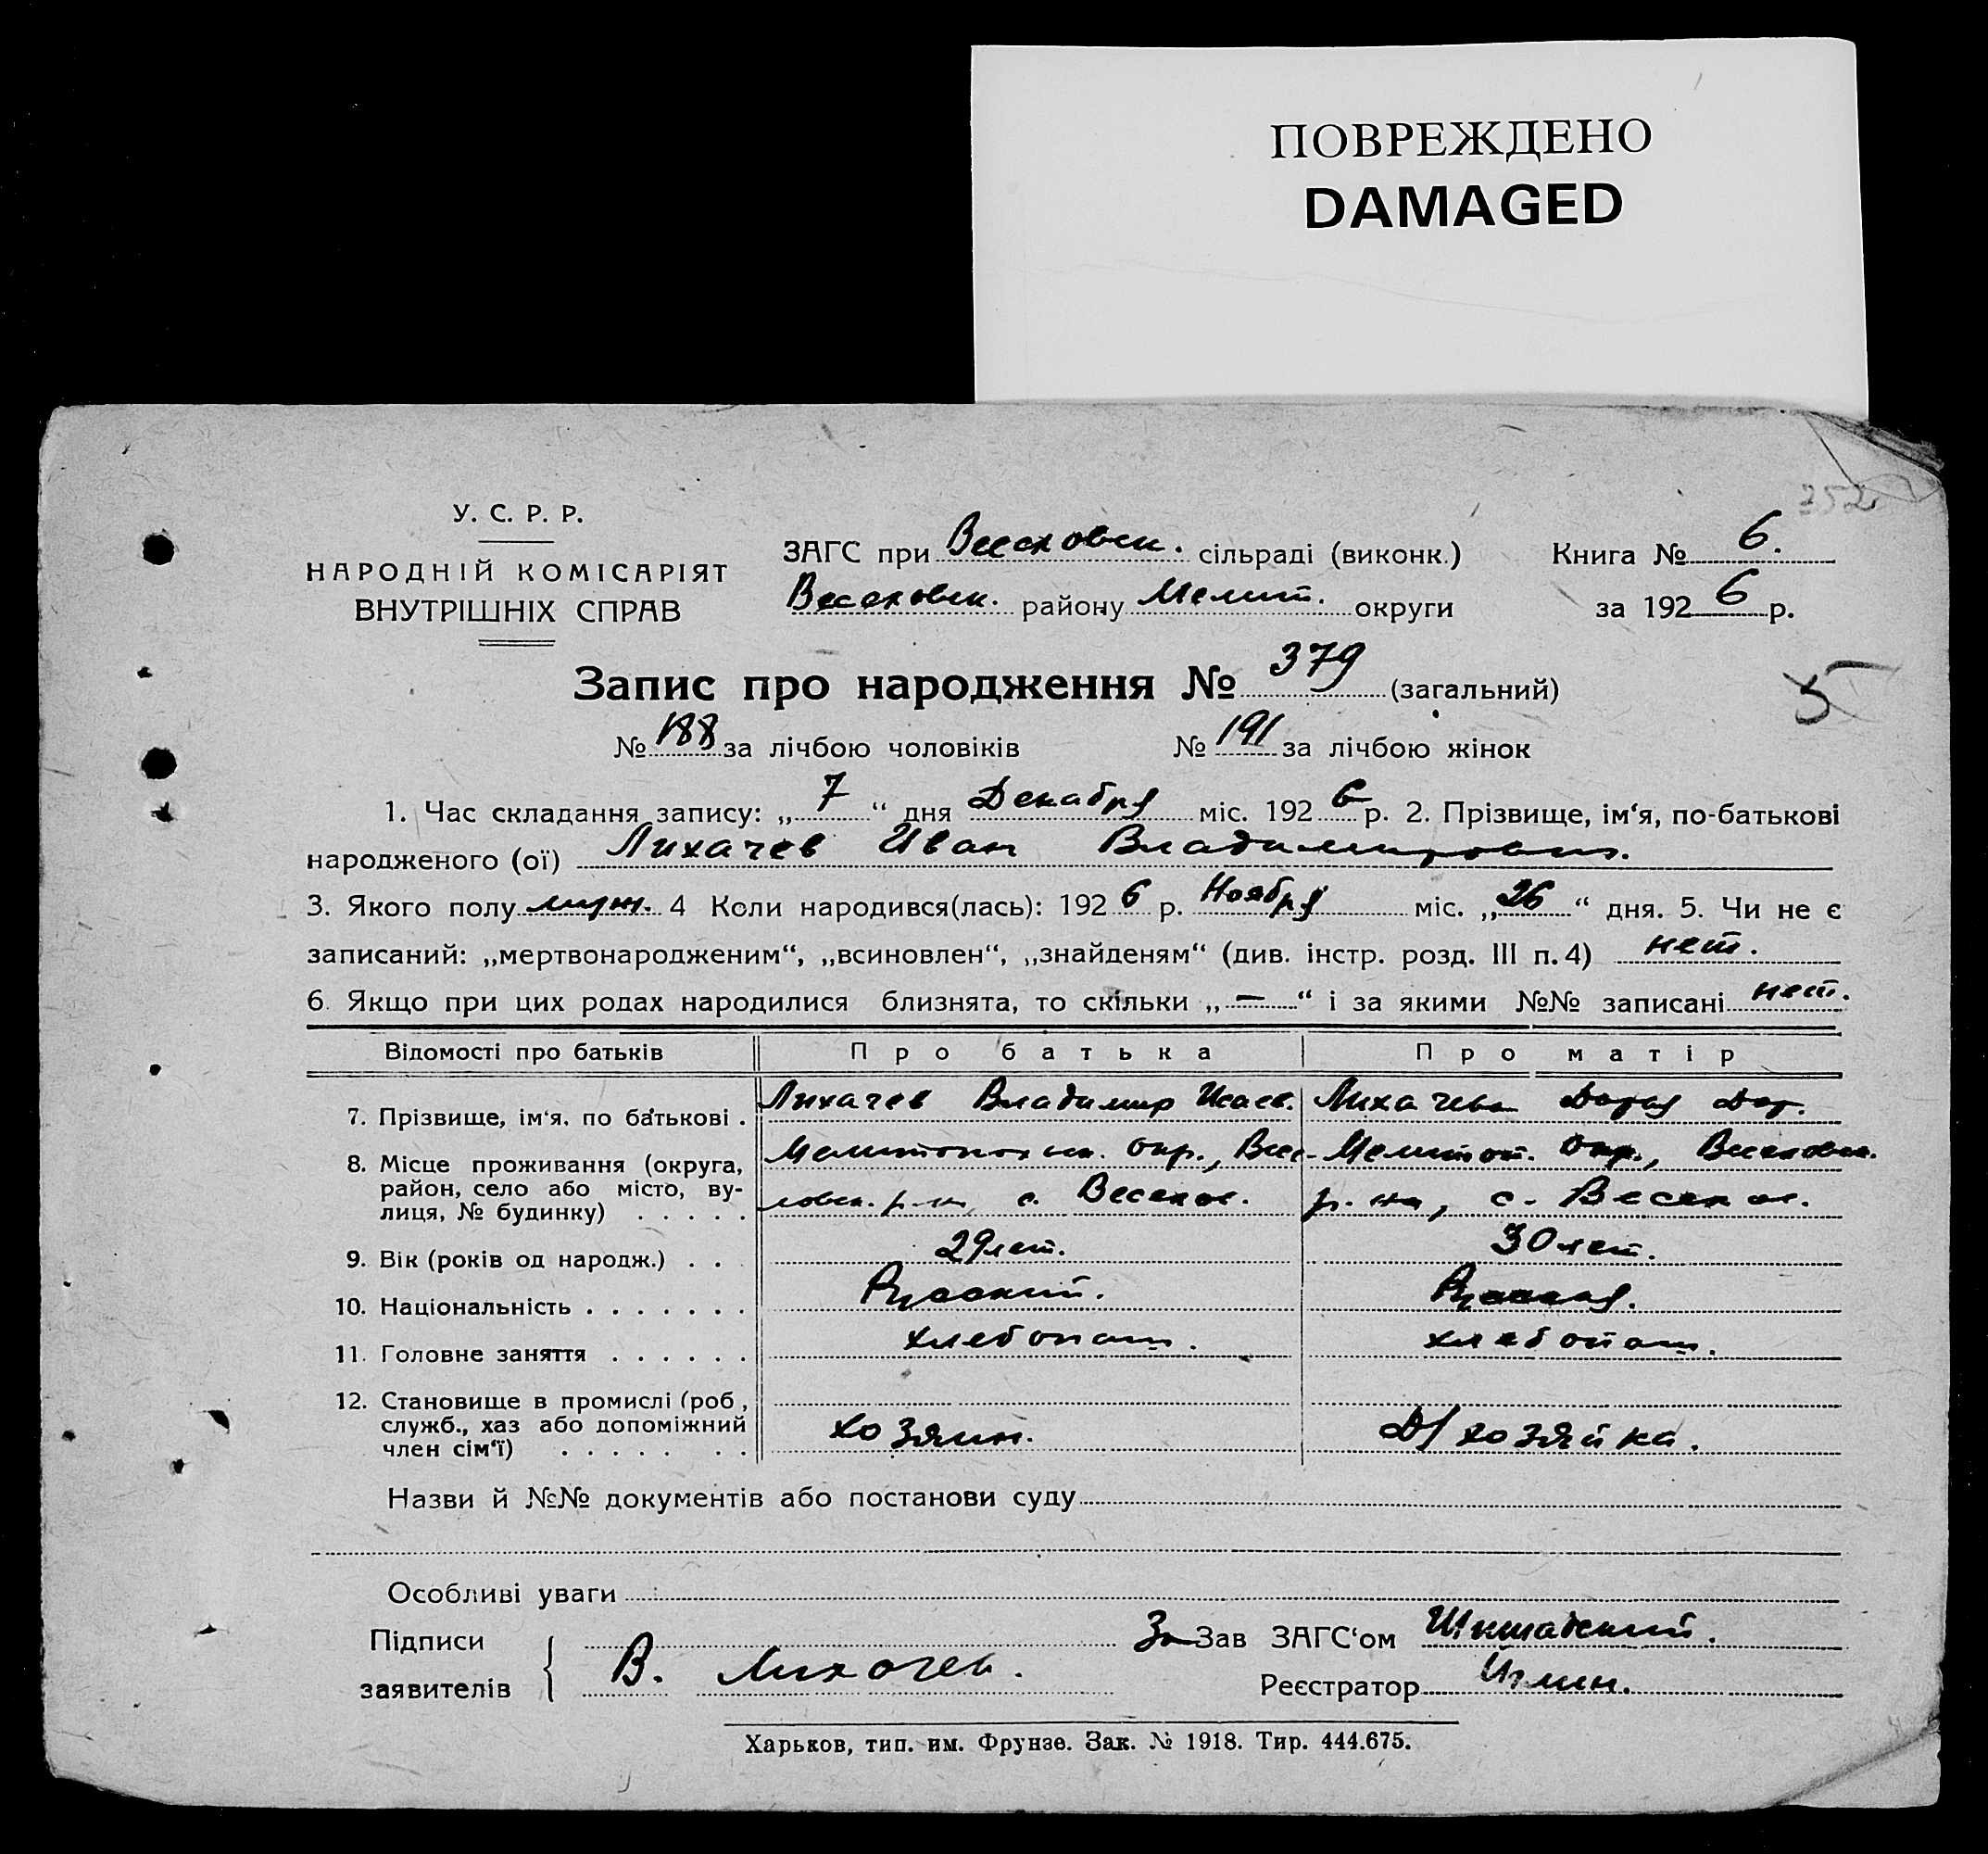 ПОВРЕЖДЕНО
DAMAGED
352
У. С. Р. Р.
НАРОДНІЙ КОМІСАРІЯТ
ВНУТРІШНІХ СПРАВ
ЗАГС при Веселовск. сільраді (виконк.)
Веселовск. району Мелит. округи
Книга № 6.
за 1926 р.
Запис про народження № 379 (загальний)
5
№ 188 за лічбою чоловіків № 191 за лічбою жінок
1. Час складання запису: „7“ дня Декабря міс. 1926 р. 2. Прізвище, ім‘я, по-батькові
народженого (ої) Лихачев Иван Владимирович.
3. Якого полу муж. 4 Коли народився(лась): 1926 р. Ноября міс. „26“ дня. 5. Чи не є
записаний: „мертвонародженим“, „всиновлен“, „знайденям“ (див. інстр. розд. III п. 4) нет.
6. Якщо при цих родах народилися близнята, то скільки „—“ і за якими №№ записані нет.
Відомості про батьків Про батька Про матір
7. Прізвище, ім‘я, по батькові . Лихачев Владимир Исаев. Лихачева
8. Місце проживання (округа, район, село або місто, вулиця, № будинку) . . . . . Мелитопольск. окр., Веселовск. р-н, с. Веселое. Мелитоп. окр., Веселовск. р-на, с. Веселое.
9. Вік (років од народж.) . . 29 лет. 30 лет.
10. Національність . . . . . . . Русский. Русская.
11. Головне заняття . . . . . . хлебопаш. хлебопаш.
12. Становище в промислі (роб, служб., хаз або допоміжний член сім‘ї) . . . . . . . хозяин. Д/хозяйка.
Назви й №№ документів або постанови суду
Особливі уваги
Підписи
заявителів
В. Лихачев.
За Зав ЗАГС‘ом
Реєстратор
Харьков, тип. им. Фрунзе. Зак. № 1918. Тир. 444.675.